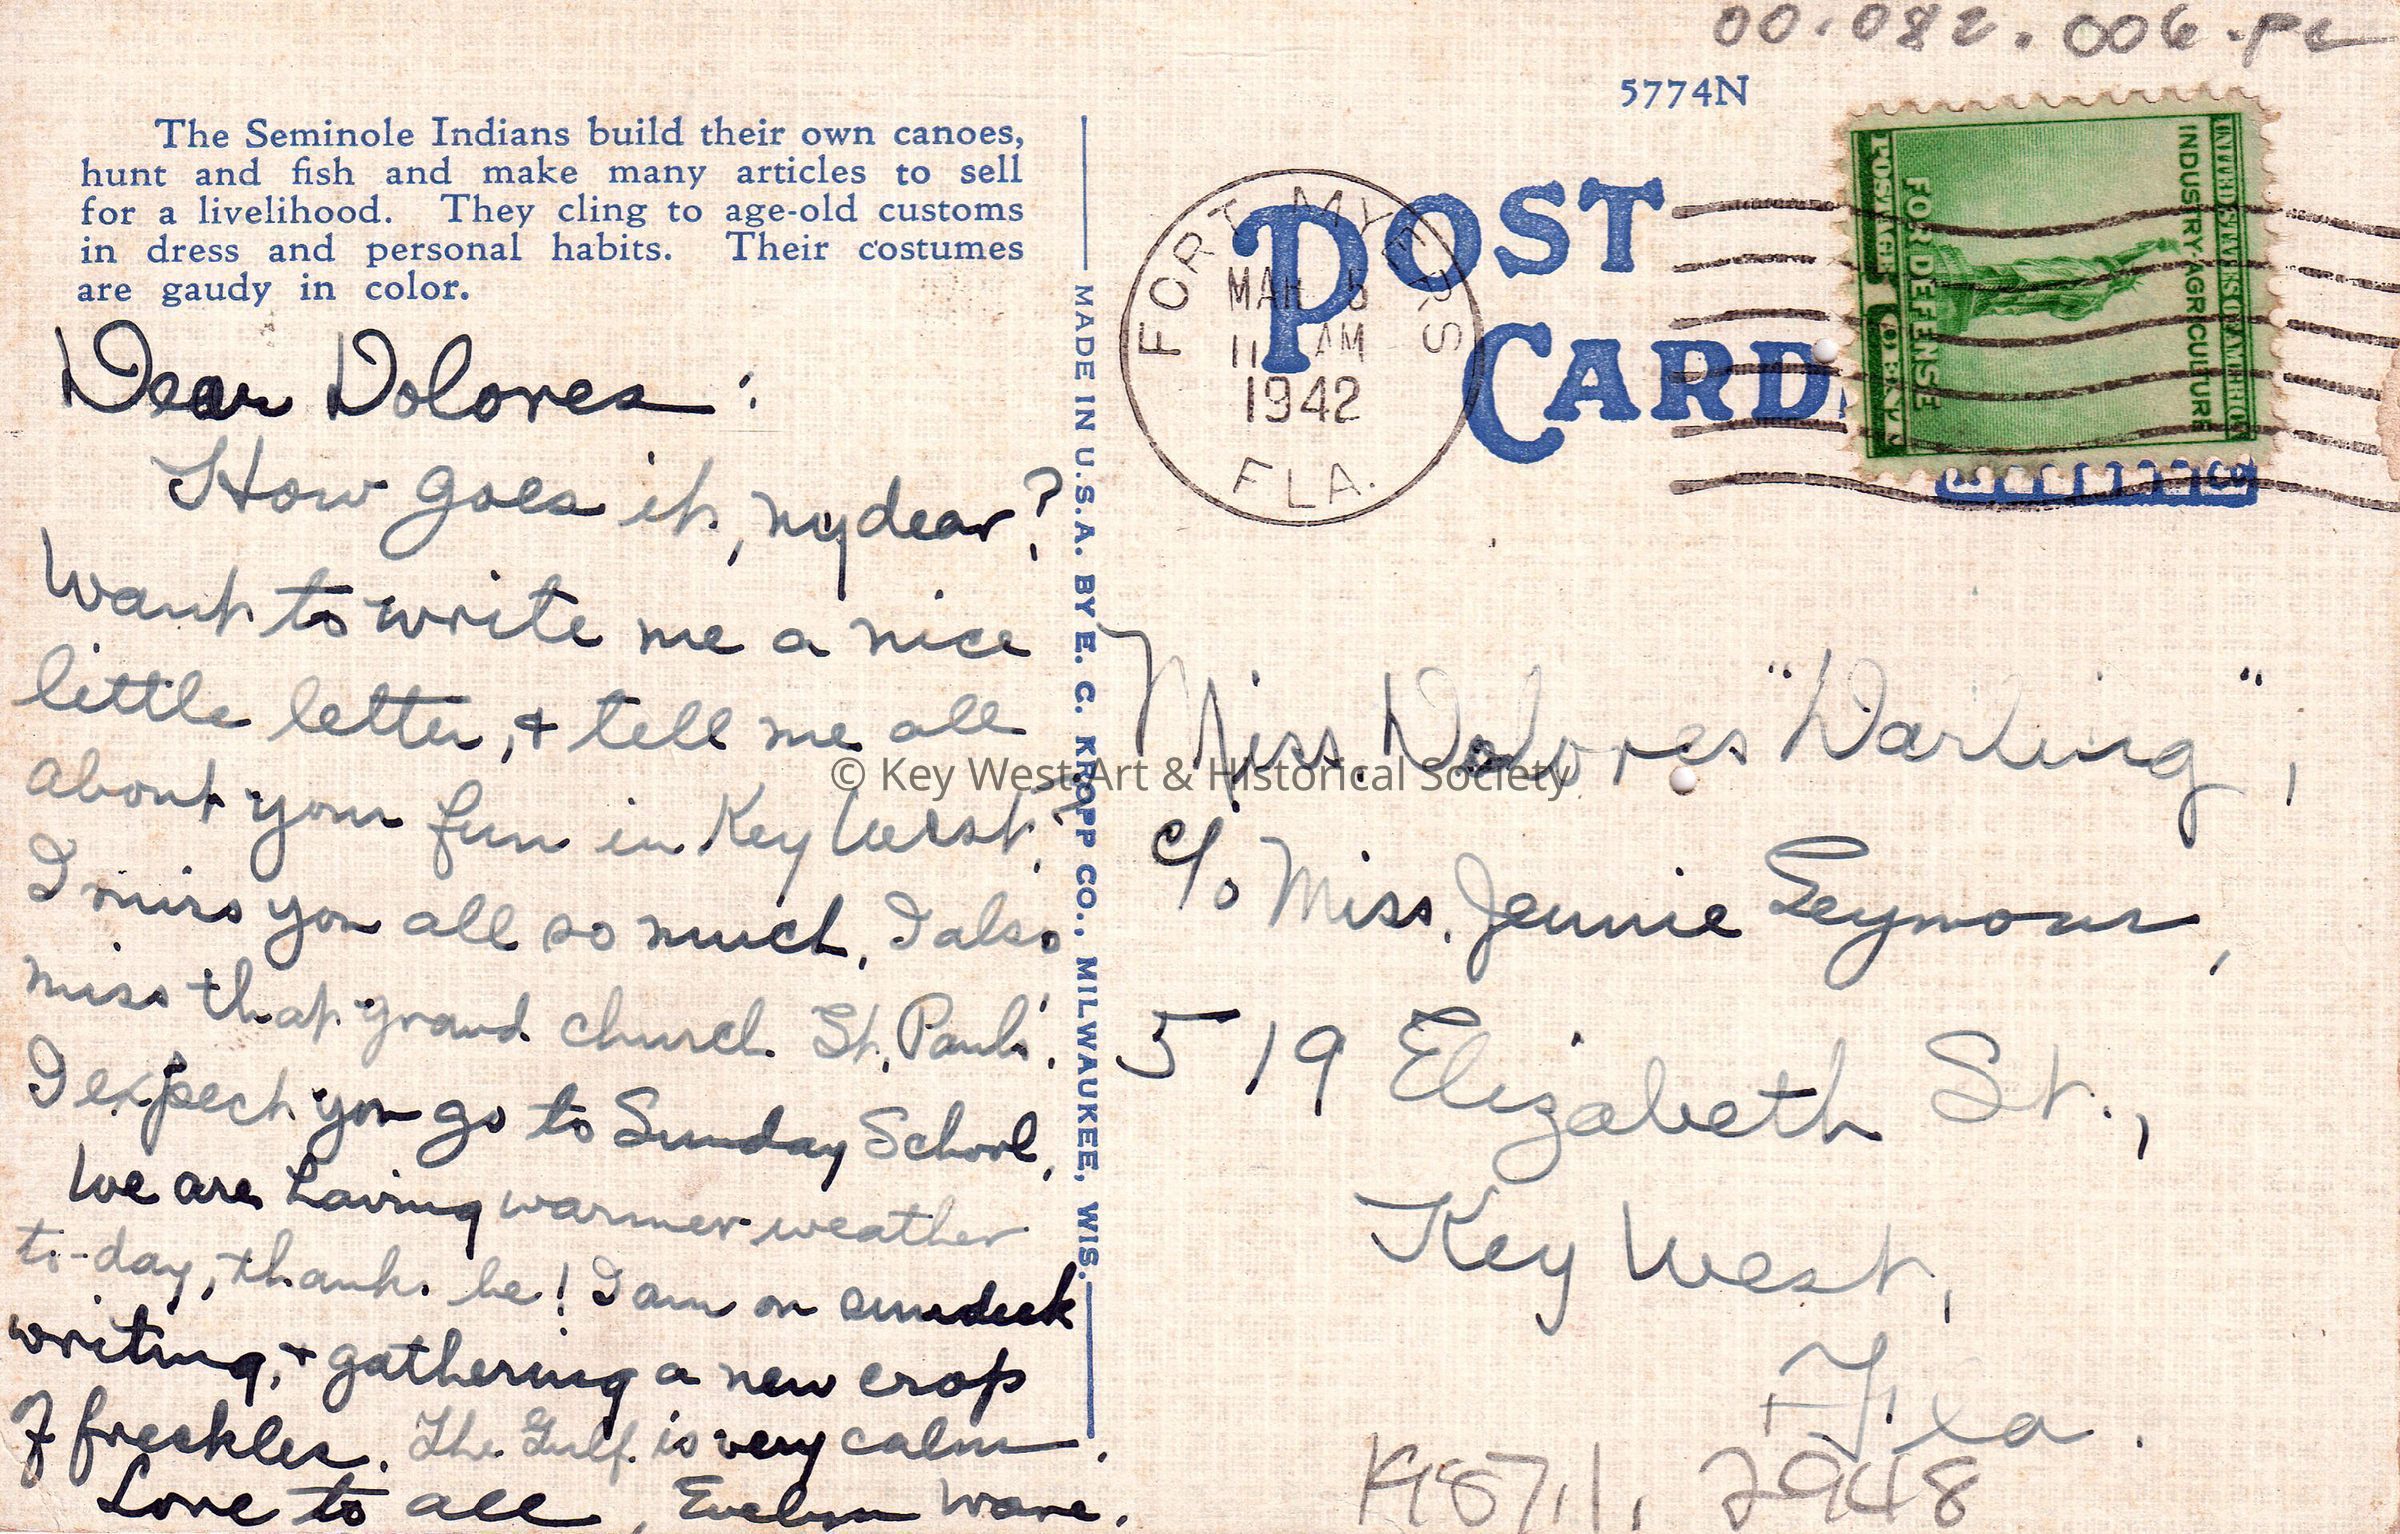 00.082.006.PC
5774N
The Seminole Indians build their own canoes,
hunt and fish and make many articles to sell
for a livelihood. They cling to age-old customs
in dress and personal habits. Their costumes
are gaudy in color.
Dear Dolores:
How goes it, my dear?
Want to write me a nice
little letter, & tell me all
about your fun in Key West?
I miss you all so much, I also
miss that grand church St. Paul's.
I expect you go to Sunday School.
We are having warmer weather
to-day, thanks be! I am on sundeck
writing, & gathering a new crop
of freckles. The Gulf is very calm.
Love to all, Evelyn
MADE IN U.S.A. BY E. C. KROPP CO., MILWAUKEE, WIS.
POST CARD
FORT MYERS
MAR 5
11 AM
1942
FLA.
UNITED STATES OF AMERICA
INDUSTRY AGRICULTURE
FOR DEFENSE
POSTAGE 1 CENT
Miss. Dolores "Darling",
c/o Miss. Jennie Seymour,
519 Elizabeth St.,
Key West,
Fla.
© Key West Art & Historical Society